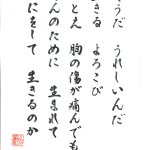 うだ　うれしいんだ
きる　よろこび
とえ　胸の傷が痛んでも
んのために　生まれて
にをして　生きるのか